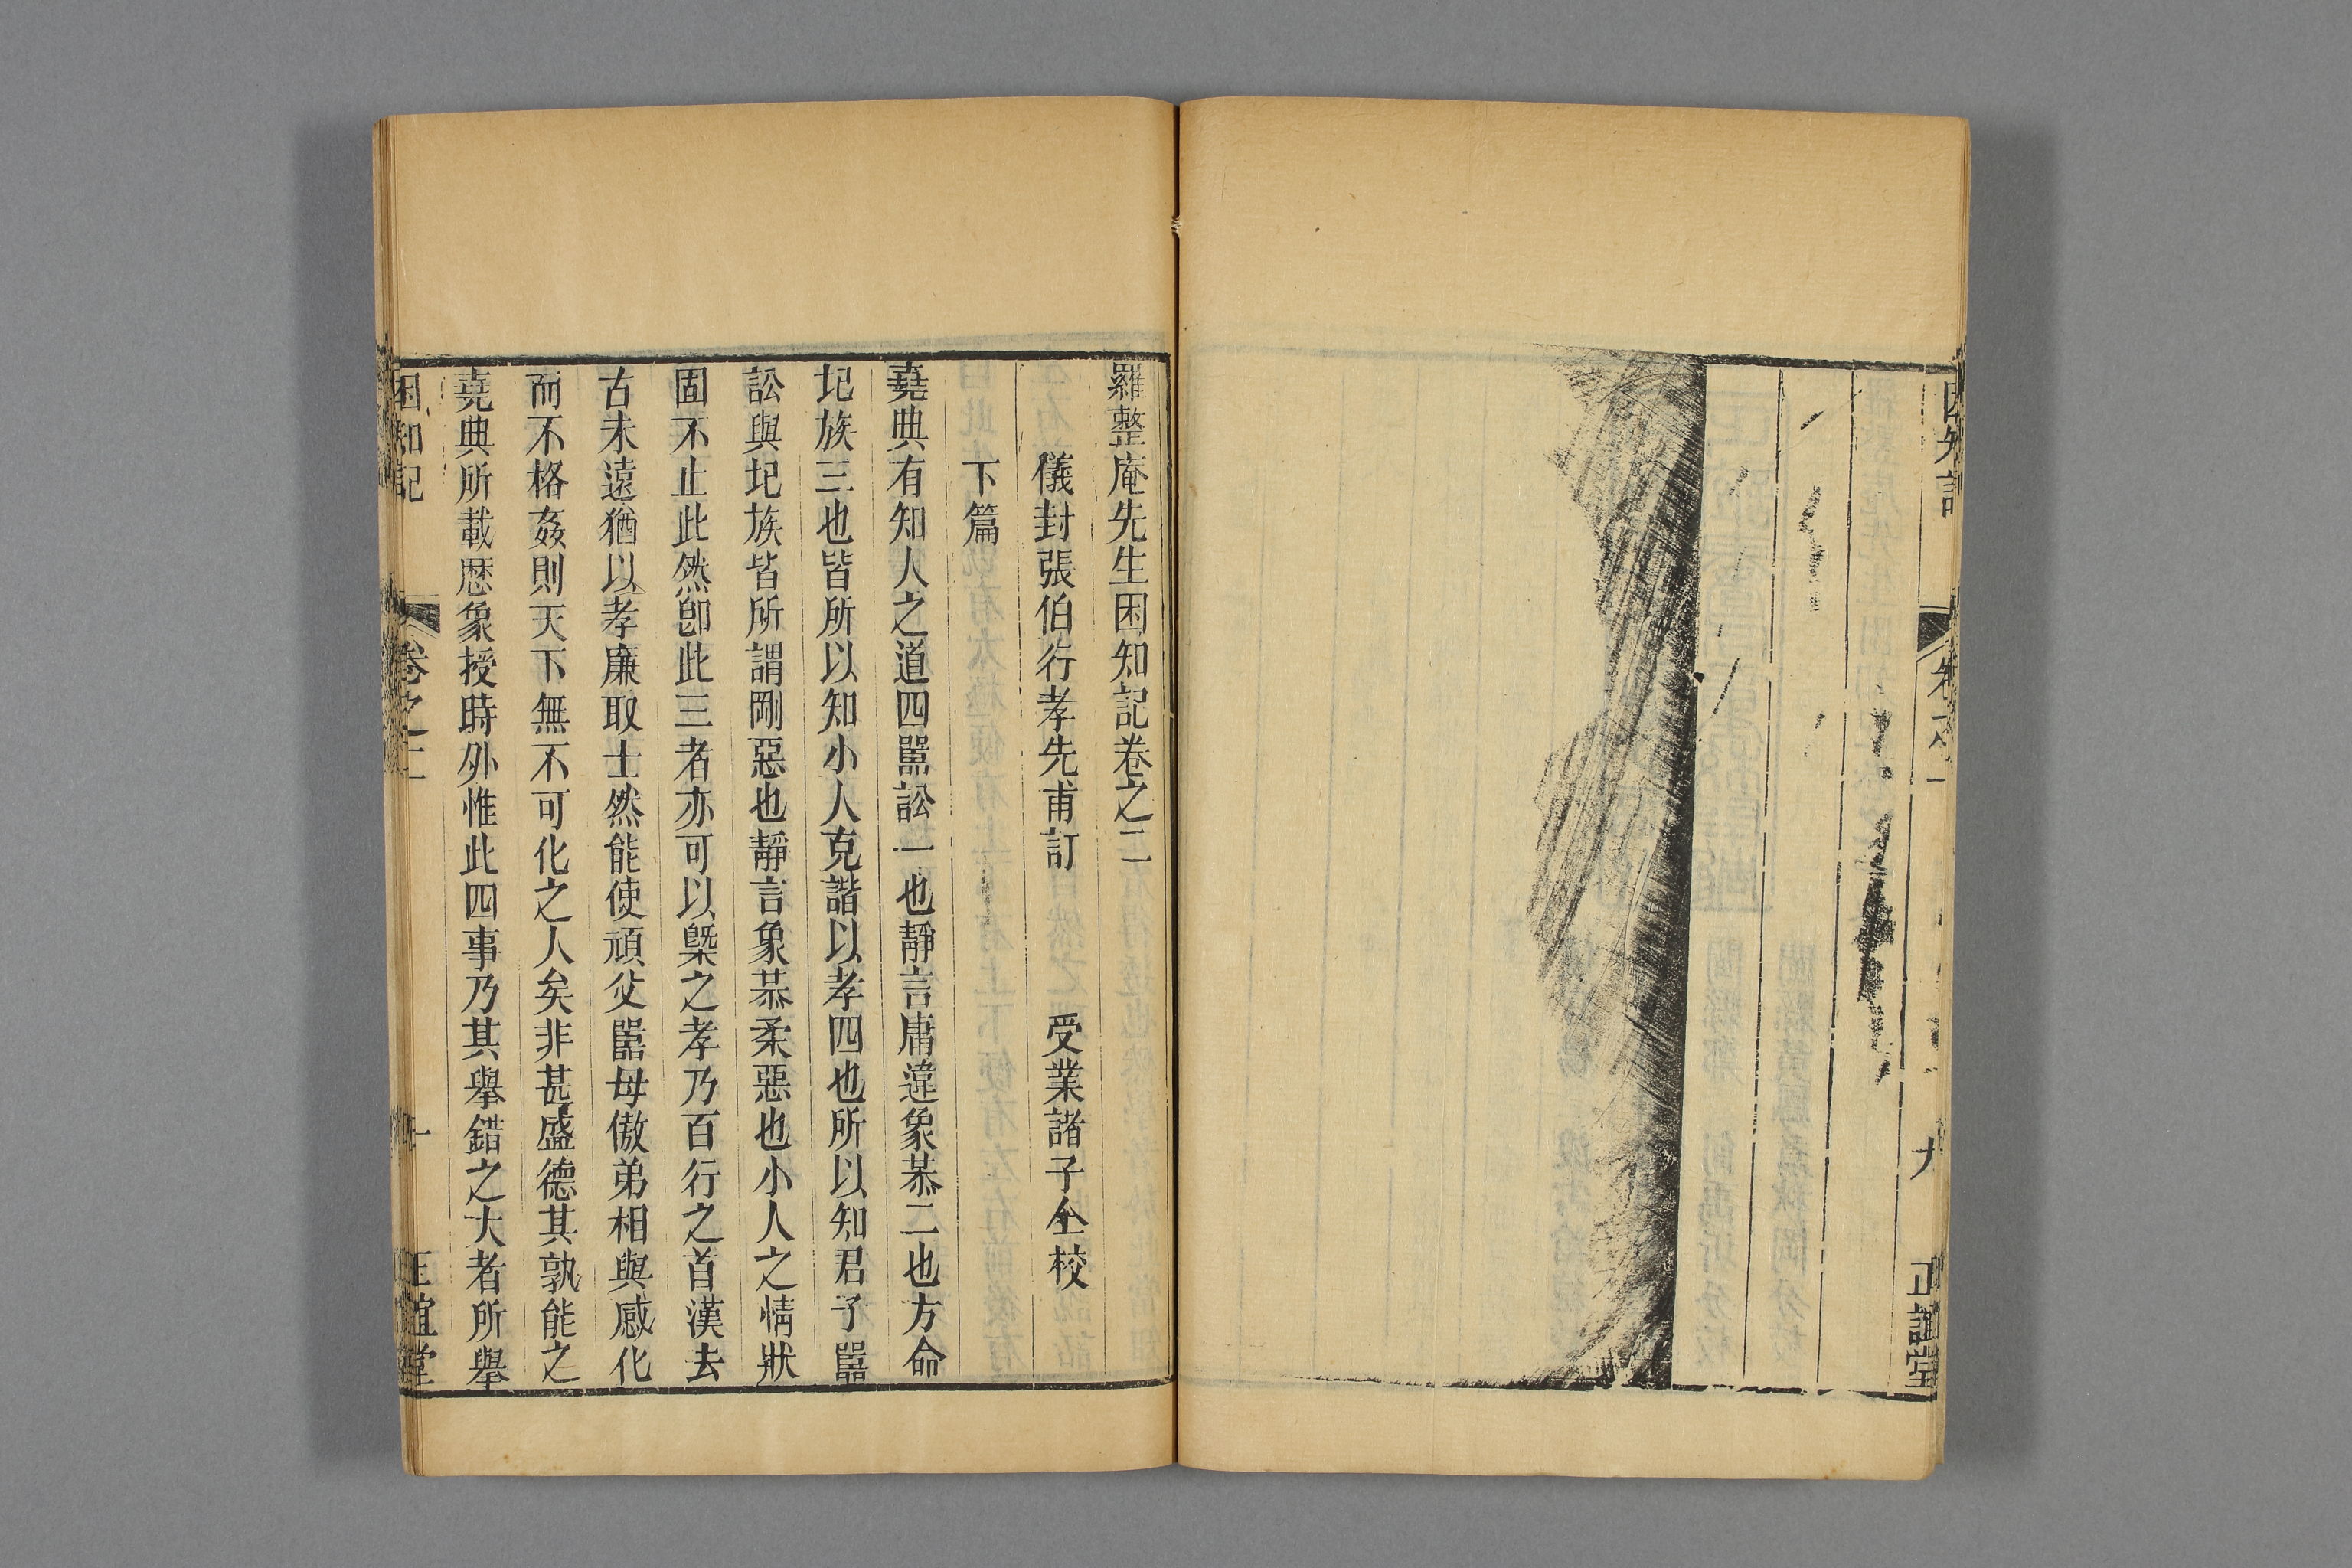 困知記 卷之一 九 正誼堂
羅整庵先生困知記卷之二
儀封張伯行孝先甫訂 受業諸子仝校
下篇
堯典有知人之道四嚚訟一也靜言庸違象恭二也方命
圮族三也皆所以知小人克諧以孝四也所以知君子嚚
訟與圮族皆所謂剛惡也靜言象恭柔惡也小人之情狀
固不止此然卽此三者亦可以槩之孝乃百行之首漢去
古未遠猶以孝廉取士然能使頑父嚚母傲弟相與感化
而不格姦則天下無不可化之人矣非甚盛德其孰能之
堯典所載歷象授時外惟此四事乃其舉錯之大者所舉
困知記 卷之二 一 正誼堂